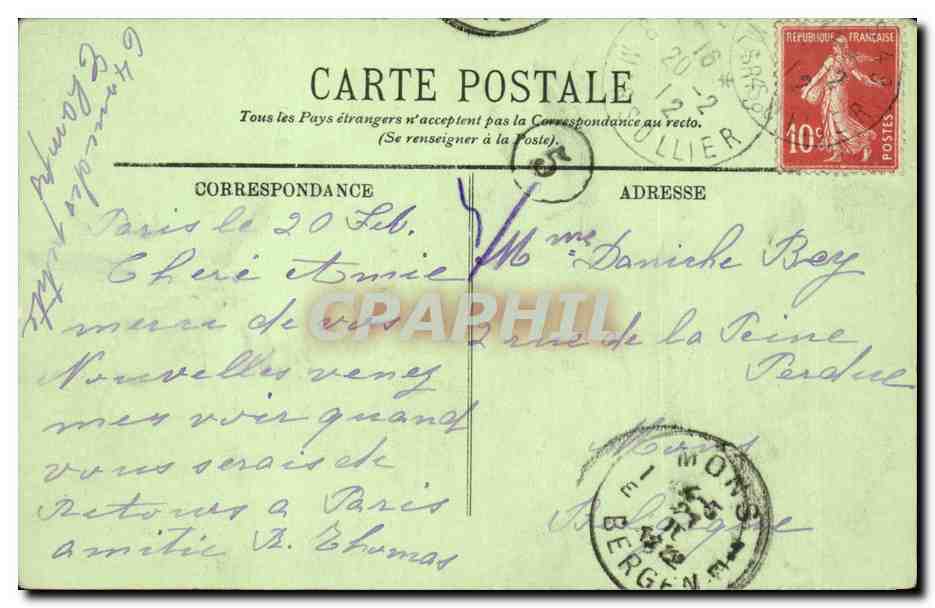 CARTE POSTALE
Tous les Pays étrangers n'acceptent pas la Correspondance au recto.
(Se renseigner à la Poste).
CORRESPONDANCE
ADRESSE
Paris le 20 Feb.
Cheré Amie
merci de vos
Nouvelles venez
mes voir quand
vous serais de
retours a Paris
amitié R. Thomas
Mme Daniche Bey
2 rue de la Peine
Perdue
Mons
Belgique
64
Champs
RÉPUBLIQUE FRANÇAISE
10c
POSTES
16 *
20 -2
12
5
MONS 1
BERGEN
CPAPHIL